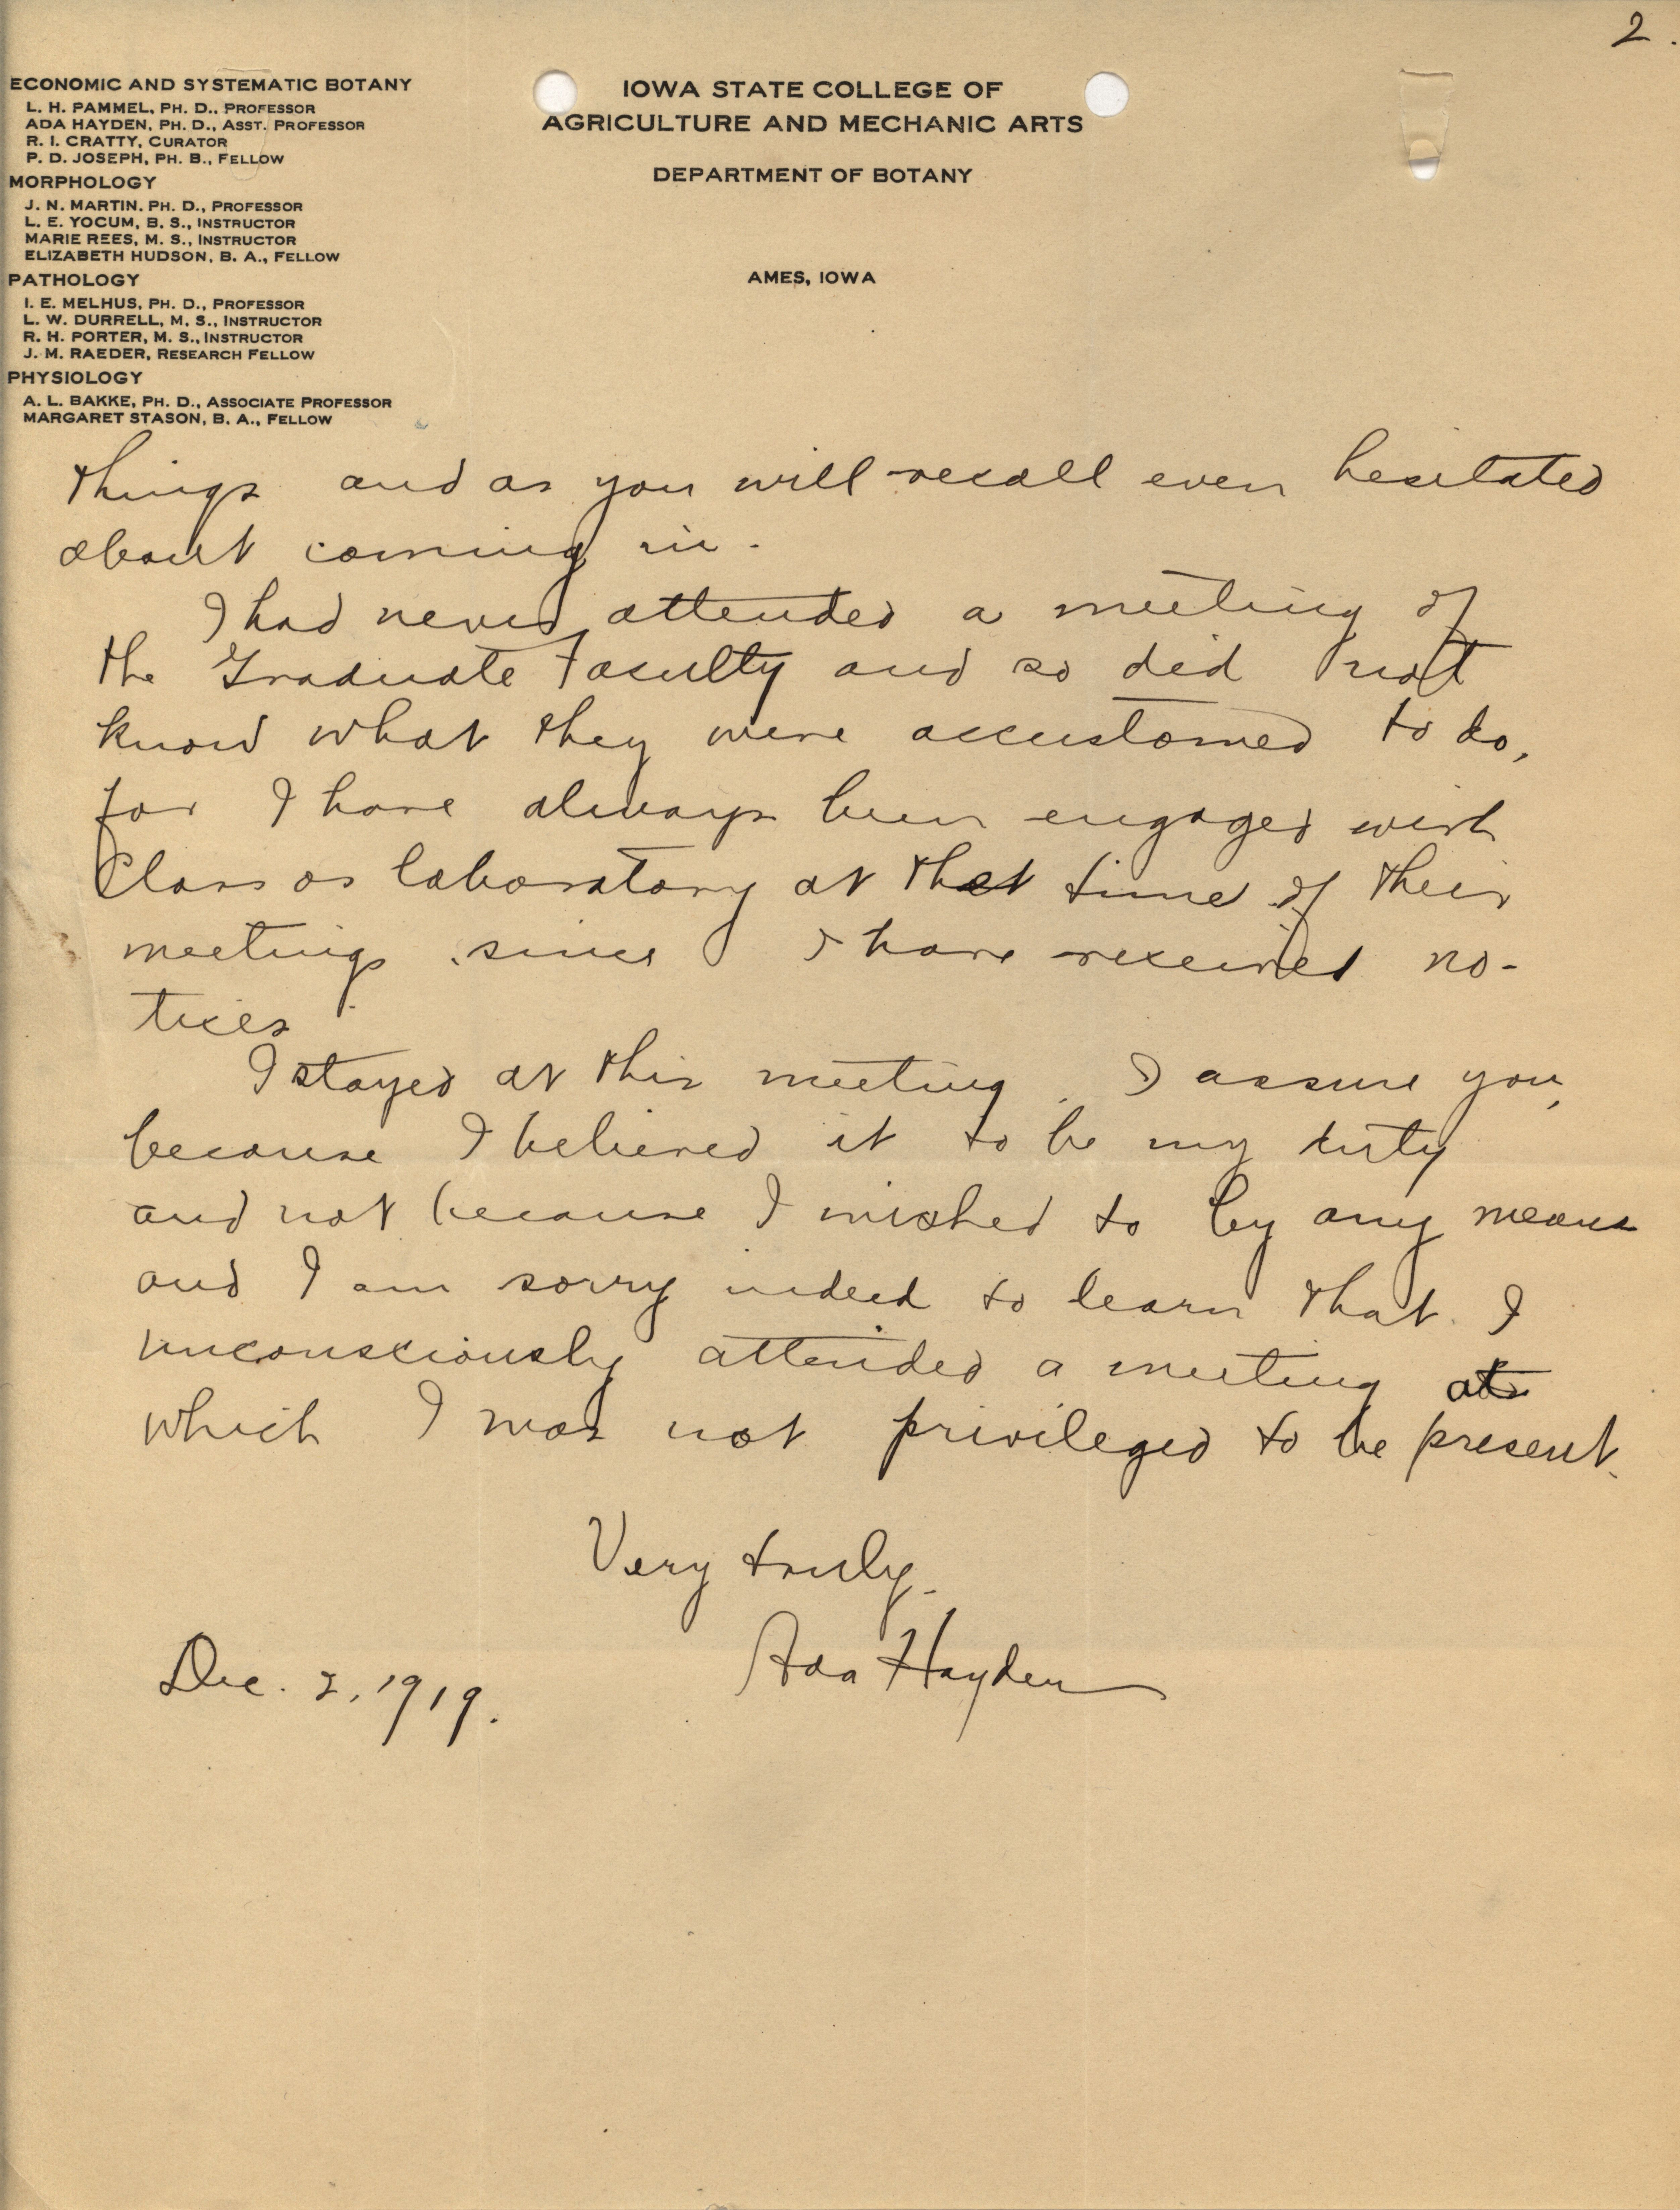 2.
ECONOMIC AND SYSTEMATIC BOTANY
L. H. PAMMEL, PH. D., PROFESSOR
ADA HAYDEN, PH. D., ASST. PROFESSOR
R. I. CRATTY, CURATOR
P. D. JOSEPH, PH. B., FELLOW
MORPHOLOGY
J. N. MARTIN. PH. D., PROFESSOR
L. E. YOCUM, B. S., INSTRUCTOR
MARIE REES, M. S., INSTRUCTOR
ELIZABETH HUDSON, B. A., FELLOW
PATHOLOGY
I. E. MELHUS, PH. D., PROFESSOR
L. W. DURRELL, M. S., INSTRUCTOR
R. H. PORTER, M. S., INSTRUCTOR
J. M. RAEDER, RESEARCH FELLOW
PHYSIOLOGY
A. L. BAKKE, PH. D., ASSOCIATE PROFESSOR
MARGARET STASON, B. A., FELLOW
IOWA STATE COLLEGE OF
AGRICULTURE AND MECHANIC ARTS
DEPARTMENT OF BOTANY
AMES, IOWA
things and as you will recall even hesitated
about coming in.
I had never attended a meeting of
the Graduate Faculty and so did not
know what they were accustomed to do,
for I have always been engaged with
Class or laboratory at that time of their
meetings since I have received no-
tices
I stayed at this meeting, I assure you,
because I believed it to be my duty
and not because I wished to by any means
and I am sorry indeed to learn that I
unconsciously attended a meeting at
which I was not privileged to be present.
Very truly.
Ada Hayden
Dec. 2, 1919.